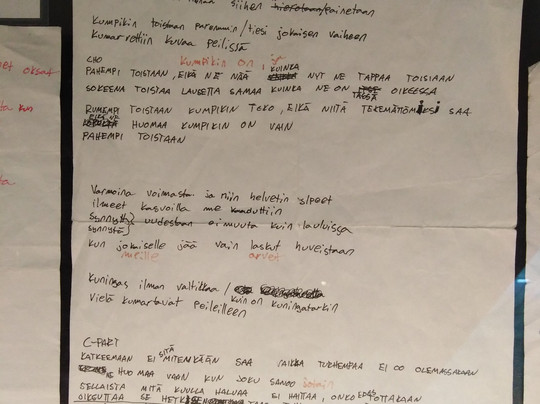 siihen painetaan
kumpikin toistaan paremmin/tiesi jokaisen vaiheen
kumarrottiin kuvaa peilissä
CHO kumpikin on
PAHEMPI TOISTAAN, EIKÄ NE NÄÄ KUINKA NYT NE TAPPAA TOISIAAN
SOKEENA TOISTAA LAUSETTA SAMAA KUINKA NE ON TÄSSÄ OIKEESSA
RUMEMPI TOISTAAN KUMPIKIN TOKO, EIKÄ NIITÄ TEKEMÄTTÖMIKSI SAA
HUOMAA KUMPIKIN ON VAIN
PAHEMPI TOISTAAN
Varmoina voimasta ja niin helvetin ylpeet
ilmeet kasvoilla me kaaduttiin
synnyttä uudestaan ei muuta kuin lauluissa
synnytä
kun jokaiselle jää vain laskut huveistaan
meille arvet
kuningas ilman valtikkaa /
Vielä kumartavat peileilleen kuin on kuningatarkin
C-PART
KATKEEMAAN EI SITÄ MITENKÄÄN SAA PAIKKA TURHEMPAA EI OO OLEMASSAKAAN
NE HUOMAA VAAN KUN JOKU SANOO jotain
SELLAISTA MITÄ KUULLA HALUAA EI HAITTAA, ONKO EDES TOTTAKAAN
OIKEUTTAA SE
oksat
kun